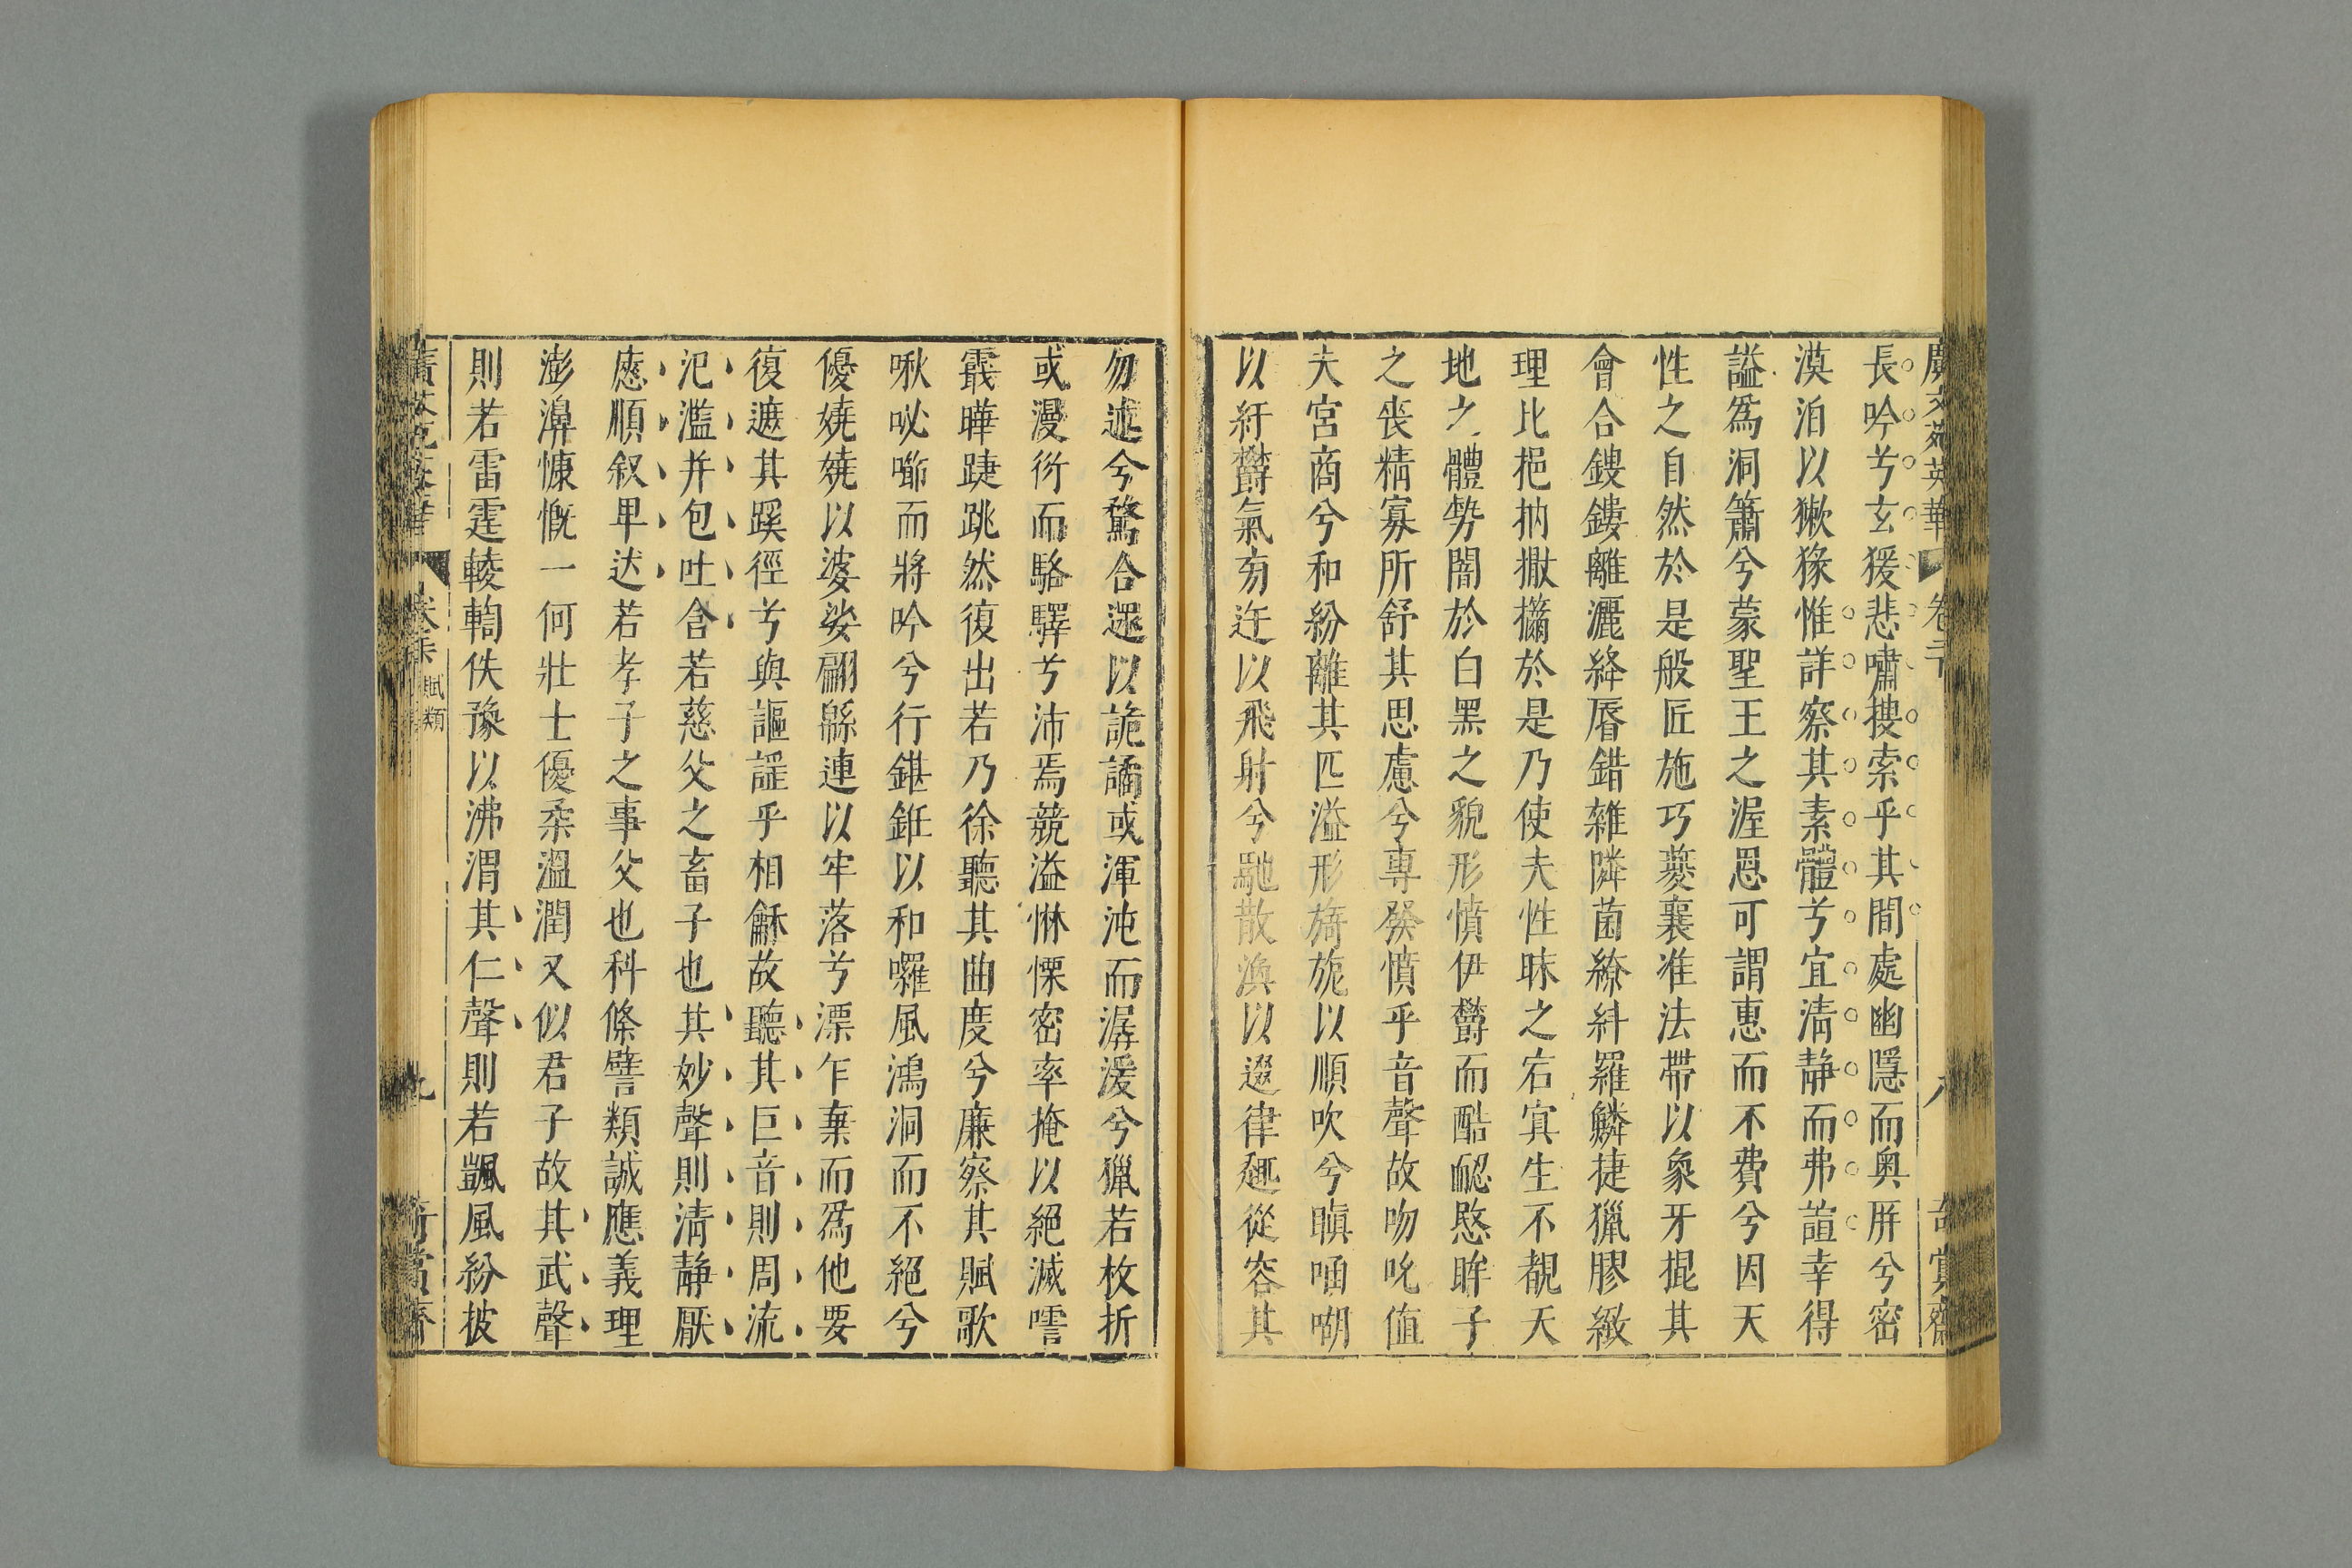 廣文苑英華 卷二十 八 奇賞齋
長吟兮玄猨悲嘯搜索乎其間處幽隱而奧屏兮密
漠泊以獙猭惟詳察其素體兮宜清靜而弗諠幸得
謚爲洞簫兮蒙聖王之渥恩可謂惠而不費兮因天
性之自然於是般匠施巧夔襄准法帶以象牙掍其
會合鎪鏤離灑絳脣錯雜鄰菌繚糾羅鱗捷獵膠緻
理比挹抐撒㩶於是乃使夫性昧之宕冥生不覩天
地之體勢闇於白黑之貌形憤伊鬱而酷䎸愍眸子
之喪精寡所舒其思慮兮專發憤乎音聲故吻吮值
夫宮商兮和紛離其匹溢形旖旎以順吹兮瞋㖤㗅
以紆鬱氣旁迕以飛射兮馳散渙以逫律趣從容其
勿述兮騖合遝以詭譎或渾沌而潺湲兮獵若枚折
或漫衍而駱驛兮沛焉競溢惏慄密率掩以絕滅㗱
霵曄踕跳然復出若乃徐聽其曲度兮廉察其賦歌
啾咇㘉而將吟兮行鍖銋以和囉風鴻洞而不絕兮
優嬈嬈以婆娑翩緜連以牢落兮漂乍棄而爲他要
復遮其蹊徑兮與謳謠乎相龢故聽其巨音則周流
汜濫并包吐含若慈父之畜子也其妙聲則清靜厭
應順叙卑迖若孝子之事父也科條譬類誠應義理
澎濞慷慨一何壯士優柔溫潤又似君子故其武聲
則若雷霆輘輷佚豫以沸渭其仁聲則若颽風紛披
廣文苑英華 賦類 九 奇賞齋